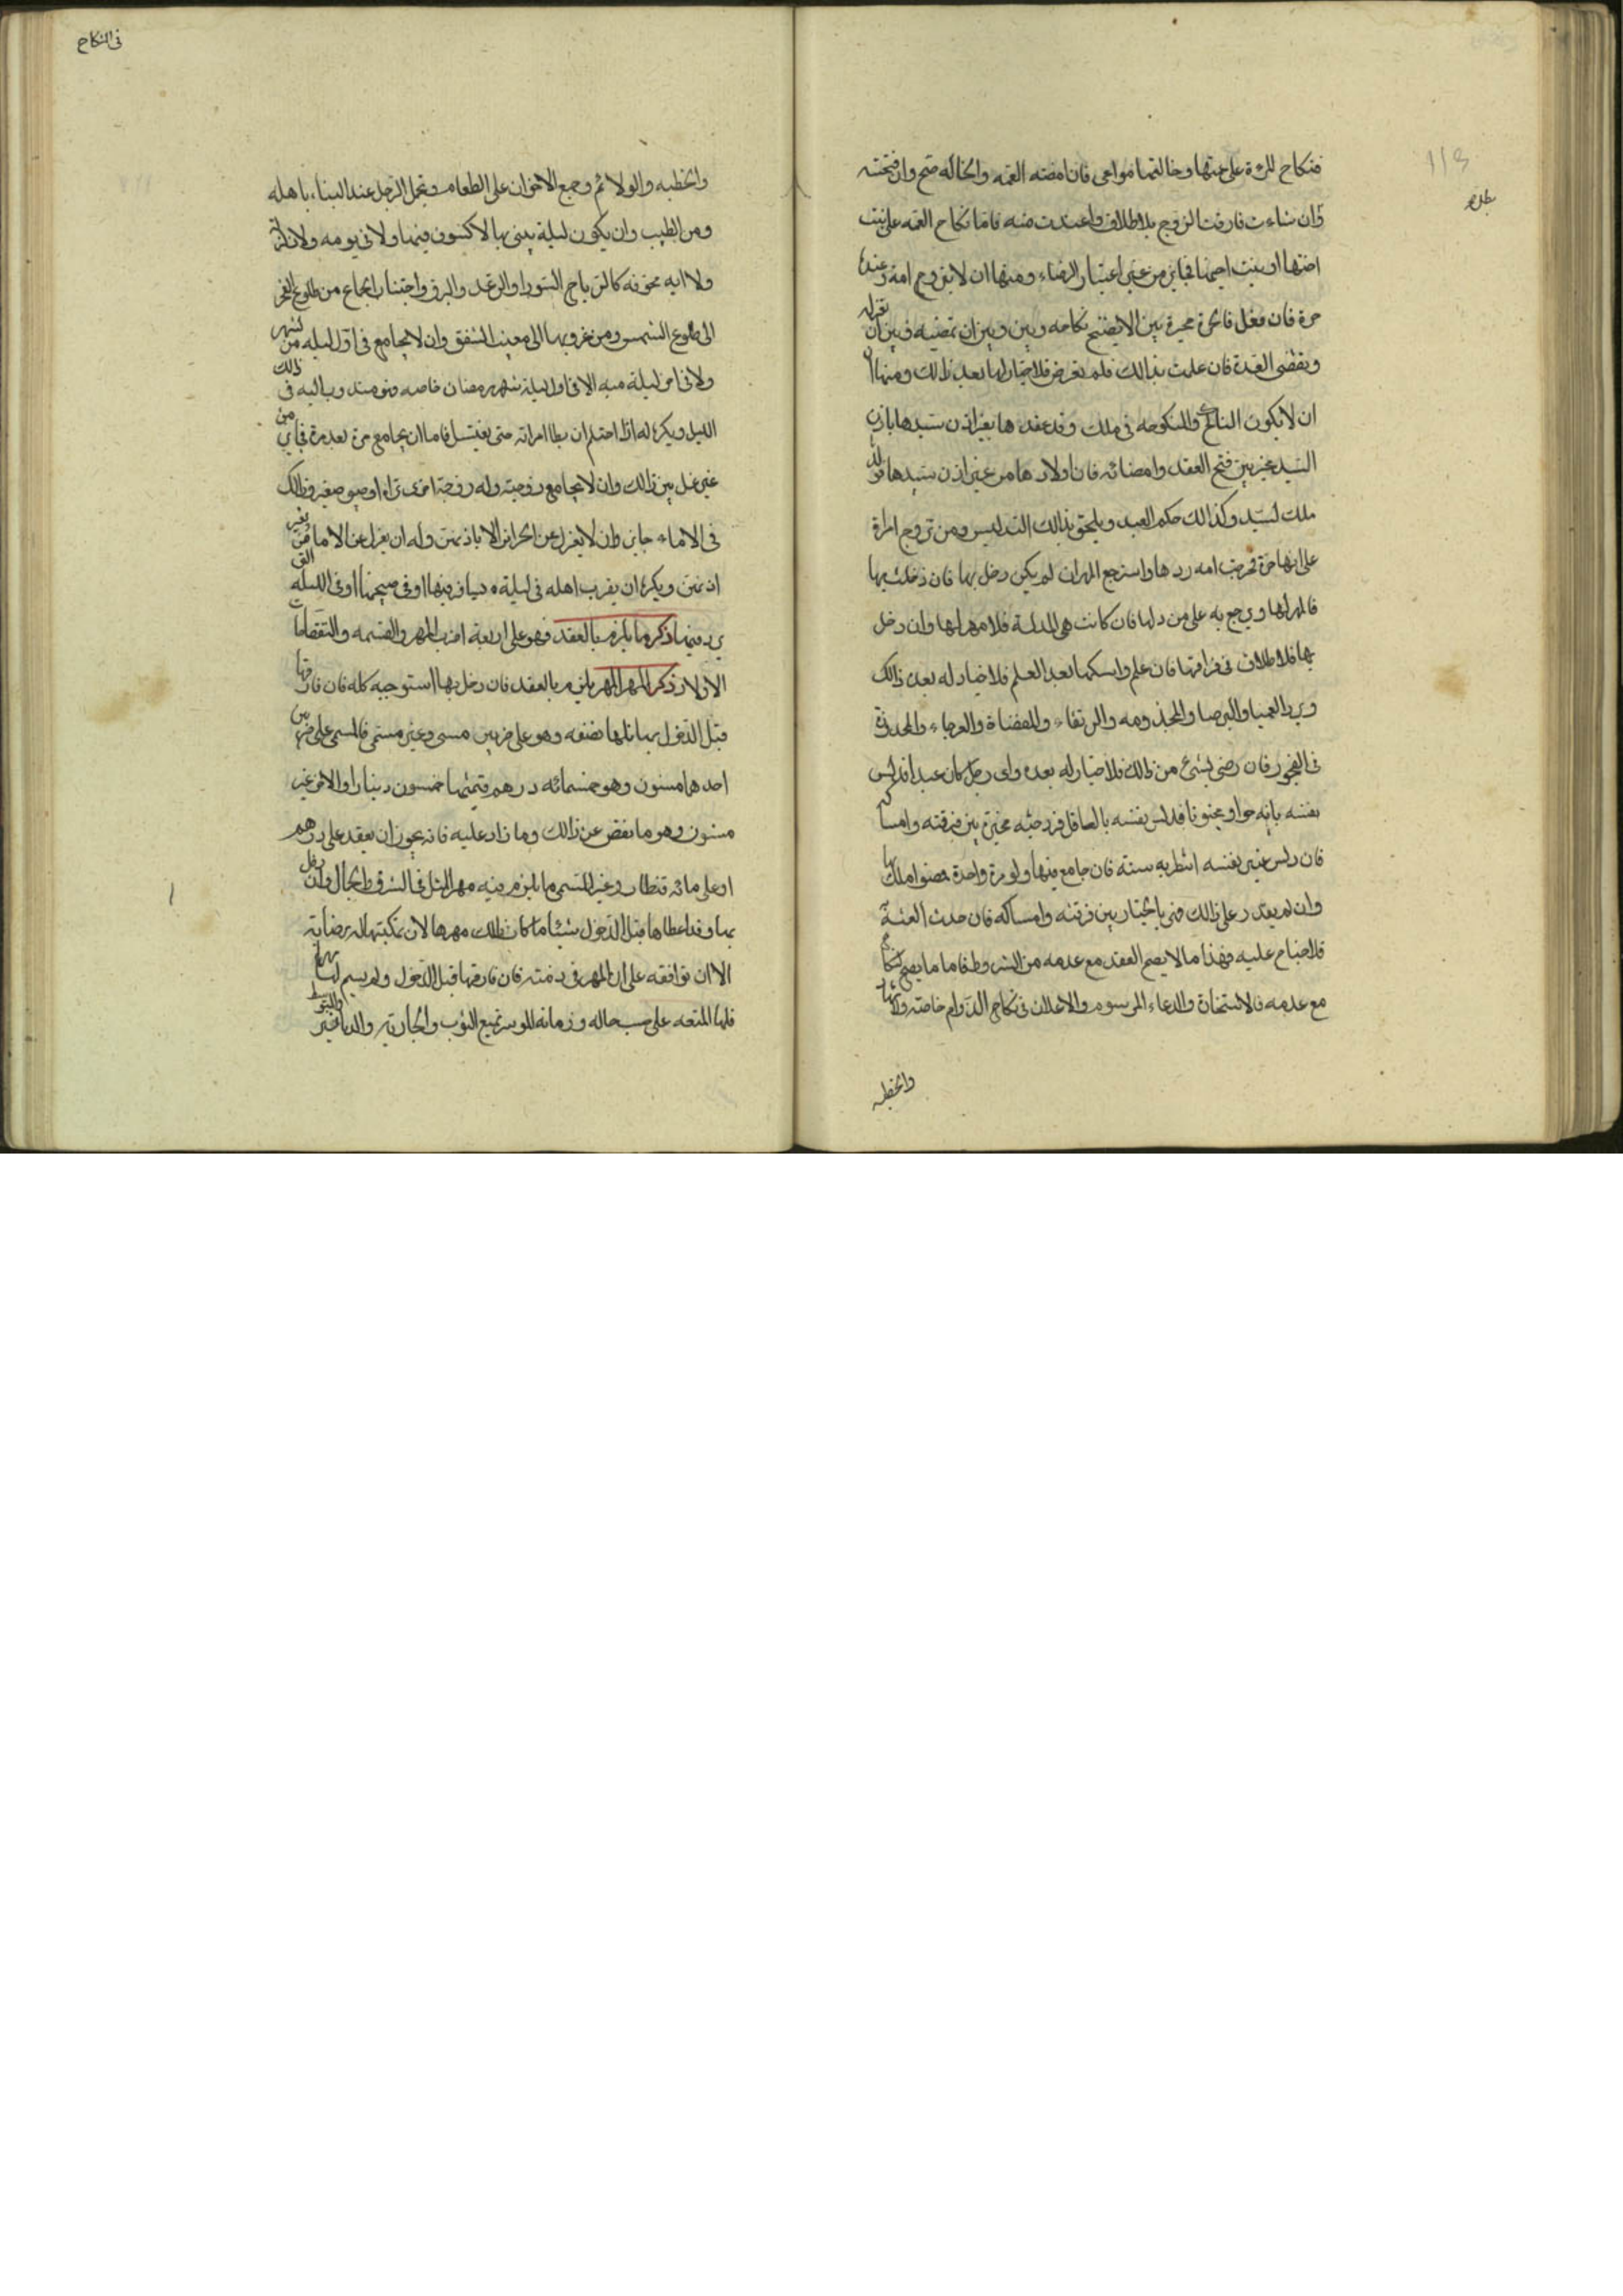 فنكاح المرءة على عمتها وخالتها مواعى فان امضته العمه والخاله صح وان فسخته
وان شاءت فارقت الزوج بلا طلاق واعتدت منه فاما نكاح العمه على بنت
اختها او بنت اخيها فجايز من غير اعتبار الرضاء ومنها ان لا يتزوج امة وعنده
حرة فان فعل فالحرة مخيرة بين الا يفسخ نكاحه وبين ان تمضيه وبين ان تعتزله
وتقضى العدة فان علمت بذالك فلم تعرض فلا خيار لها بعد ذالك ومنها
ان لا يكون الناكح والمنكوحه فى ملك وقد عقدها بغير اذن سيدها باذن
السيد مخير بين فسخ العقد وامضائه فان اولادها من غير اذن سيدها فولده
ملك لسيد وكذالك حكم العبد ويلحق بذالك التدليس ومن تزوج امراة
على انها حرة فخرجت امه ردها واسترجع المهر ان لم يكن دخل بها فان دخل بها
فالمهر لها ويرجع به على من دلها فان كانت هى المدلسة فلا مهر لها وان دخل
بها فلا طلاق فى فراقها فان علم وامسكها بعد العلم فلا خيار له بعد ذالك
ويرد العميا والبرصا والمجذومه والرتقاء والمفضاة والعرجاء والمحدودة
فى الفجور فان رضى بشئ من ذالك فلا خيار له بعده واى رجل كان عبدا فدلس
نفسه بانه حر او مجنونا فدلس نفسه بالعاقل فزوجته مخيرة بين فرقته وامساكه
فان دلس عنين نفسه انتظر به سنة فان جامع فيها ولو مرة واحدة فهو املك بها
وان لم يقدر على ذالك فهى بالخيار بين فرقته وامساكه فان حدث العنة
فلا خيار عليه فهذا ما لا يصح العقد مع عدمه من الشروط فاما ما يصح النكاح
مع عدمه فالاستخارة والدعاء المرسوم والاعلان فى نكاح الدوام خاصة والاشهاد
والخطبه
فى النكاح
والخطبه والولائم وجمع الاخوان على الطعام وتجمل الرجل عند البناء باهله
ومن الطيب وان يكون ليلة يبنى بها لا كسوف فيها ولا فى يومه ولا زلزلة
ولا ايه مخوفه كالرياح السود او الرعد والبرق واجتناب الجماع من طلوع الفجر
الى طلوع الشمس ومن غروبها الى مغيب الشفق وان لا يجامع فى اول ليله من شهر
ولا فى اخر ليلة منه الا فى اول ليلة شهر رمضان خاصه فهو مندوب اليه فى ذالك
الليل ويكره له اذا احتلم ان يطا امراته حتى يغتسل فاما ان يجامع مرة بعد مرة فجايز من
غير غسل بين ذالك وان لا يجامع زوجته وله زوجة اخرى تراه او صبى صغير وذالك
فى الاماء جايز وان لا يعزل عن الحراير الا باذنهن وله ان يعزل عن الاماء من غير
اذنهن ويكره ان يقرب اهله فى ليلة يسافر فيها او فى صبيحتها او فى الليله التى
يرد فيها ذكر ما يلزم بالعقد فهو على اربعة اضرب المهر والقسمه والنفقات
الاولاد ذكر المهر المهر يلزم بالعقد فان دخل بها استوجبه كله فان فارقها
قبل الدخول بها فلها نصفه وهو على ضربين مسمى وغير مسمى فالمسمى على ضربين
احدهما مسنون وهو خمسمائه درهم قيمتها خمسون دينارا والاخر غير
مسنون وهو ما نقص عن ذالك وما زاد عليه فانه يجوز ان يعقد على درهم
او على مائه قنطار وغير المسمى ما يلزم فيه مهر المثل فى الشرف والجمال وان دخل
بها وقد اعطاها قبل الدخول شيئا ما كان ذالك مهرها لان تمكينها له رضا به
الا ان توافقه على ان المهر فى ذمته فان فارقها قبل الدخول ولم يسم لها مهرا
فلها المتعه على حسب حاله وزمانه الموسر تمتع الثوب والجاريه والدنانير والمتوسط